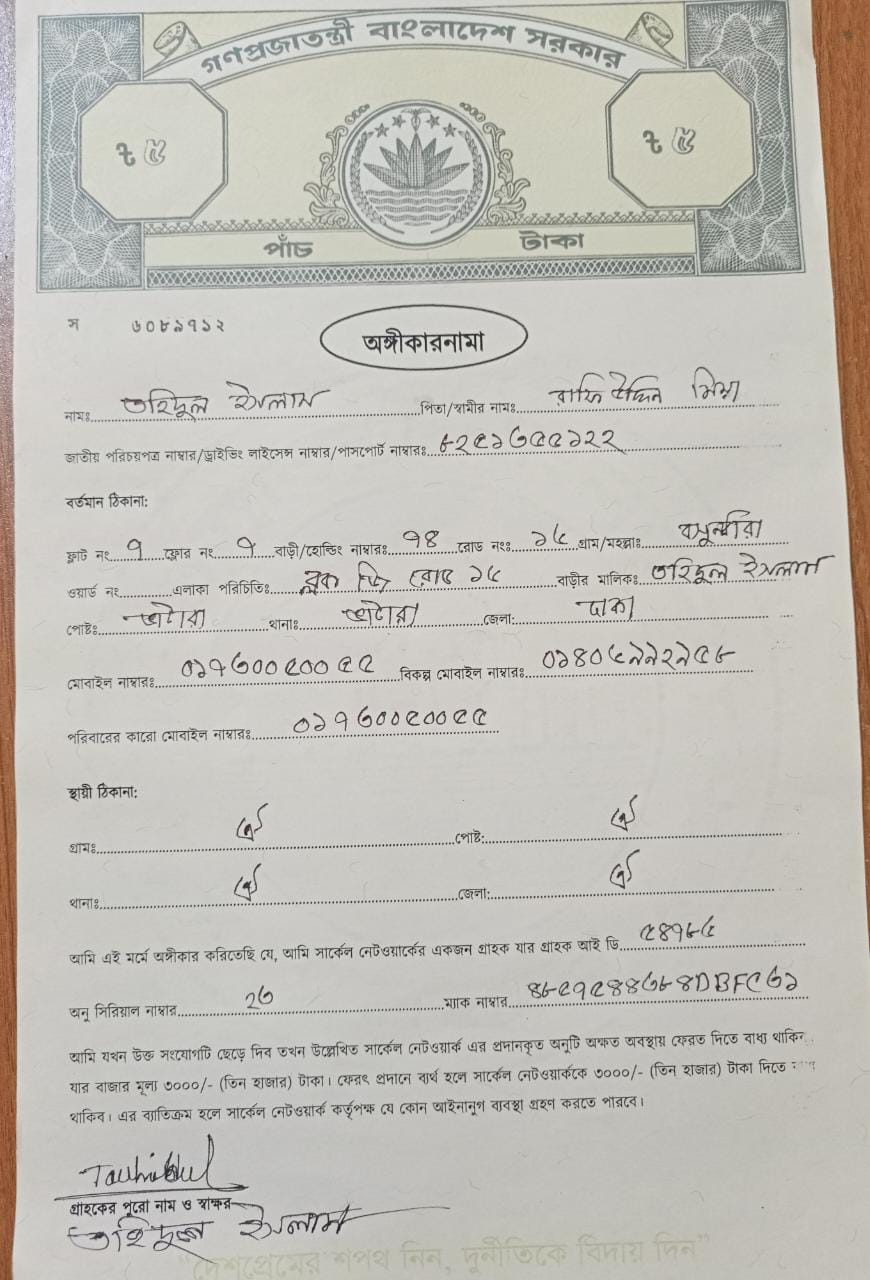 গণপ্রজাতন্ত্রী বাংলাদেশ সরকার
ট ৫ ট ৫
পাঁচ টাকা
স ৬০৮৯৭১২
অঙ্গীকারনামা
নামঃ তহিদুল ইসলাম পিতা/স্বামীর নামঃ রাফি উদ্দিন মিয়া
জাতীয় পরিচয়পত্র নাম্বার/ড্রাইভিং লাইসেন্স নাম্বার/পাসপোর্ট নাম্বারঃ
বর্তমান ঠিকানা:
ফ্লাট নং ৭ ফ্লোর নং ৭ বাড়ী/হোল্ডিং নাম্বারঃ ৭৪ রোড নংঃ ১৫ গ্রাম/মহল্লাঃ বসুন্ধরা
ওয়ার্ড নং এলাকা পরিচিতিঃ ব্লক ডি রোড ১৫ বাড়ীর মালিকঃ তহিদুল ইসলাম
পোষ্টঃ ভাটারা থানাঃ ভাটারা জেলা: ঢাকা
মোবাইল নাম্বারঃ ০১৭৩০০৫০০৫৫ বিকল্প মোবাইল নাম্বারঃ
পরিবারের কারো মোবাইল নাম্বারঃ ০১৭৩০০৫০০৫৫
স্থায়ী ঠিকানা:
গ্রামঃ ঐ পোষ্ট: ঐ
থানাঃ ঐ জেলা: ঐ
আমি এই মর্মে অঙ্গীকার করিতেছি যে, আমি সার্কেল নেটওয়ার্কের একজন গ্রাহক যার গ্রাহক আই ডি
অনু সিরিয়াল নাম্বার ২৩ ম্যাক নাম্বার
আমি যখন উক্ত সংযোগটি ছেড়ে দিব তখন উল্লেখিত সার্কেল নেটওয়ার্ক এর প্রদানকৃত অনুটি অক্ষত অবস্থায় ফেরত দিতে বাধ্য থাকিব
যার বাজার মূল্য ৩০০০/- (তিন হাজার) টাকা। ফেরৎ প্রদানে ব্যর্থ হলে সার্কেল নেটওয়ার্ককে ৩০০০/- (তিন হাজার) টাকা দিতে
থাকিব। এর ব্যতিক্রম হলে সার্কেল নেটওয়ার্ক কর্তৃপক্ষ যে কোন আইনানুগ ব্যবস্থা গ্রহণ করতে পারবে।
Tauhidul
গ্রাহকের পুরো নাম ও স্বাক্ষর
তহিদুল ইসলাম
"দেশপ্রেমের শপথ নিন, দুর্নীতিকে বিদায় দিন"